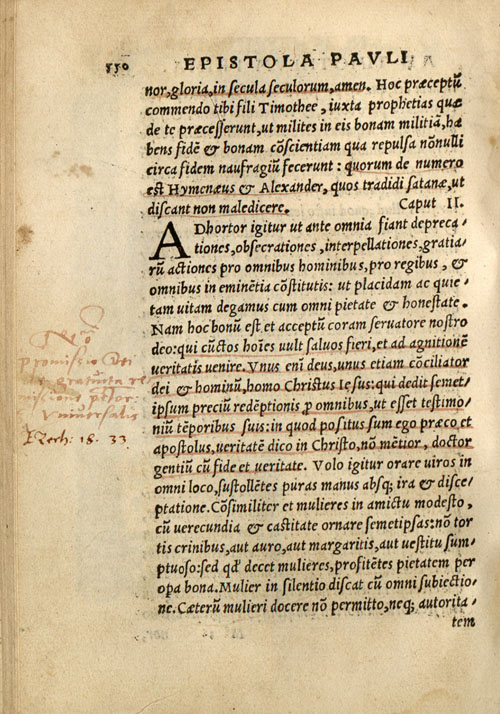 550 EPISTOLA PAVLI
nor, gloria, in secula seculorum, amen. Hoc præceptũ
commendo tibi fili Timothee, iuxta prophetias quæ
de te præcesserunt, ut milites in eis bonam militiã, ha
bens fidẽ & bonam cõscientiam qua repulsa nõnulli
circa fidem naufragiũ fecerunt: quorum de numero
est Hymenæus & Alexander, quos tradidi satanæ, ut
discant non maledicere. Caput II.
ADhortor igitur ut ante omnia fiant depreca-
tiones, obsecrationes, interpellationes, gratia-
rũ actiones pro omnibus hominibus, pro regibus, &
omnibus in eminẽtia cõstitutis: ut placidam ac quie-
tam uitam degamus cum omni pietate & honestate.
Nam hoc bonũ est et acceptũ coram seruatore nostro
deo: qui cũctos hoĩes uult saluos fieri, et ad agnitionẽ
ueritatis uenire. Vnus eni deus, unus etiam cõciliator
dei & hominũ, homo Christus Iesus: qui dedit semet-
ipsum preciũ redẽptionis ꝓ omnibus, ut esset testimo-
niũ tẽporibus suis: in quod positus sum ego præco et
apostolus, ueritatẽ dico in Christo, nõ mẽtior, doctor
gentiũ cũ fide et ueritate. Volo igitur orare uiros in
omni loco, sustollẽtes puras manus absqꝫ ira & disce-
ptatione. Cõsimiliter et mulieres in amictu modesto,
cũ uerecundia & castitate ornare semetipsas: nõ tor
tis crinibus, aut auro, aut margaritis, aut uestitu sum-
ptuoso: sed qd' decet mulieres, profitẽtes pietatem per
opa bona. Mulier in silentio discat cũ omni subiectio-
ne. Cæterũ mulieri docere nõ permitto, neqꝫ autorita-
tem
promissio
gratuita re
uniuersalis
Ezech: 18. 33